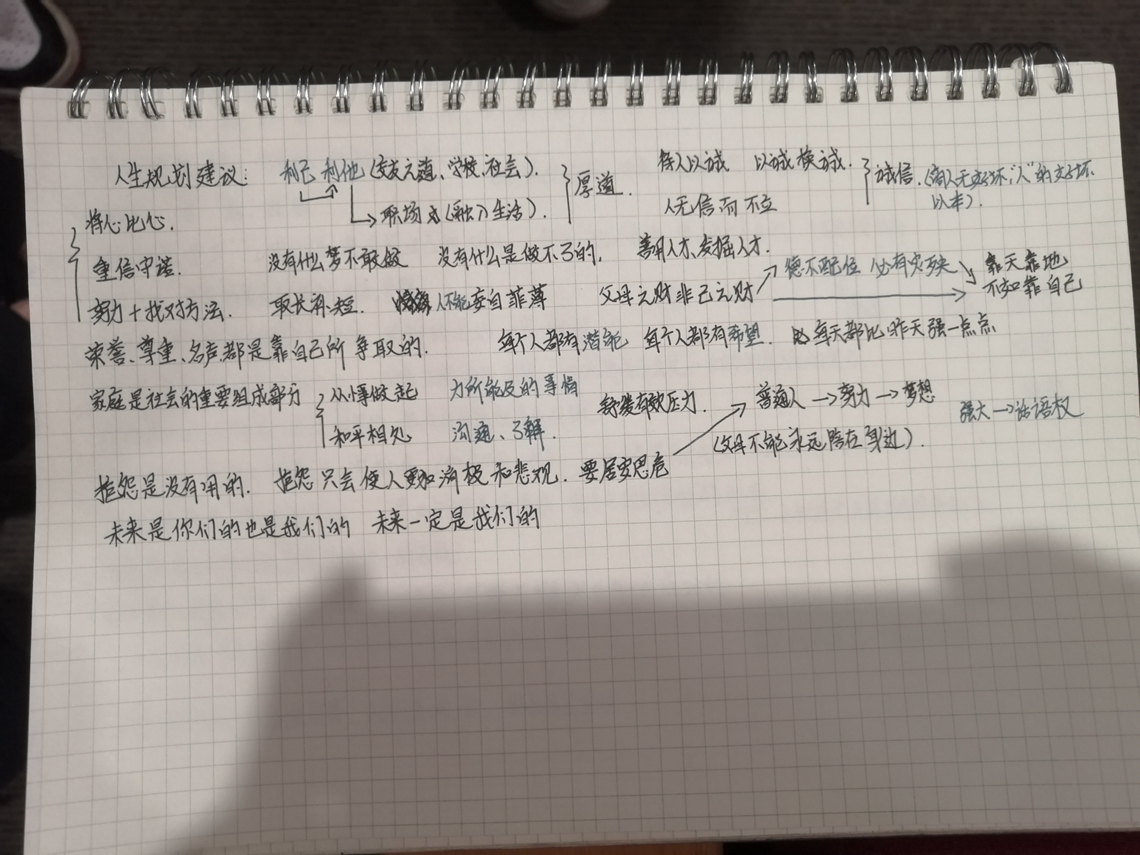 人生规划建议: 利己 利他(交友之道、学校、社会). 厚道. 待人以诚 以诚换诚. 诚信.
将心比心. 职场 (融入生活). 人无信而不立 以本).
重信守诺. 没有什么梦不敢做 没有什么是做不了的. 善用人才、发掘人才.
努力+找对方法. 取长补短. 人不能妄自菲薄 父母之财非己之财 德不配位 必有灾殃 靠天靠地 不如靠自己
荣誉、尊重、名声都是靠自己所争取的. 每个人都有潜能 每个人都有希望. 每天都比昨天强一点点
家庭是社会的重要组成部分 从小事做起 力所能及的事情 压力. 普通人→努力→梦想 强大→话语权
和平相处 沟通、了解. (父母不能永远陪在身边).
抱怨是没有用的. 抱怨只会使人更加消极和悲观. 要居安思危
未来是你们的也是我们的 未来一定是我们的